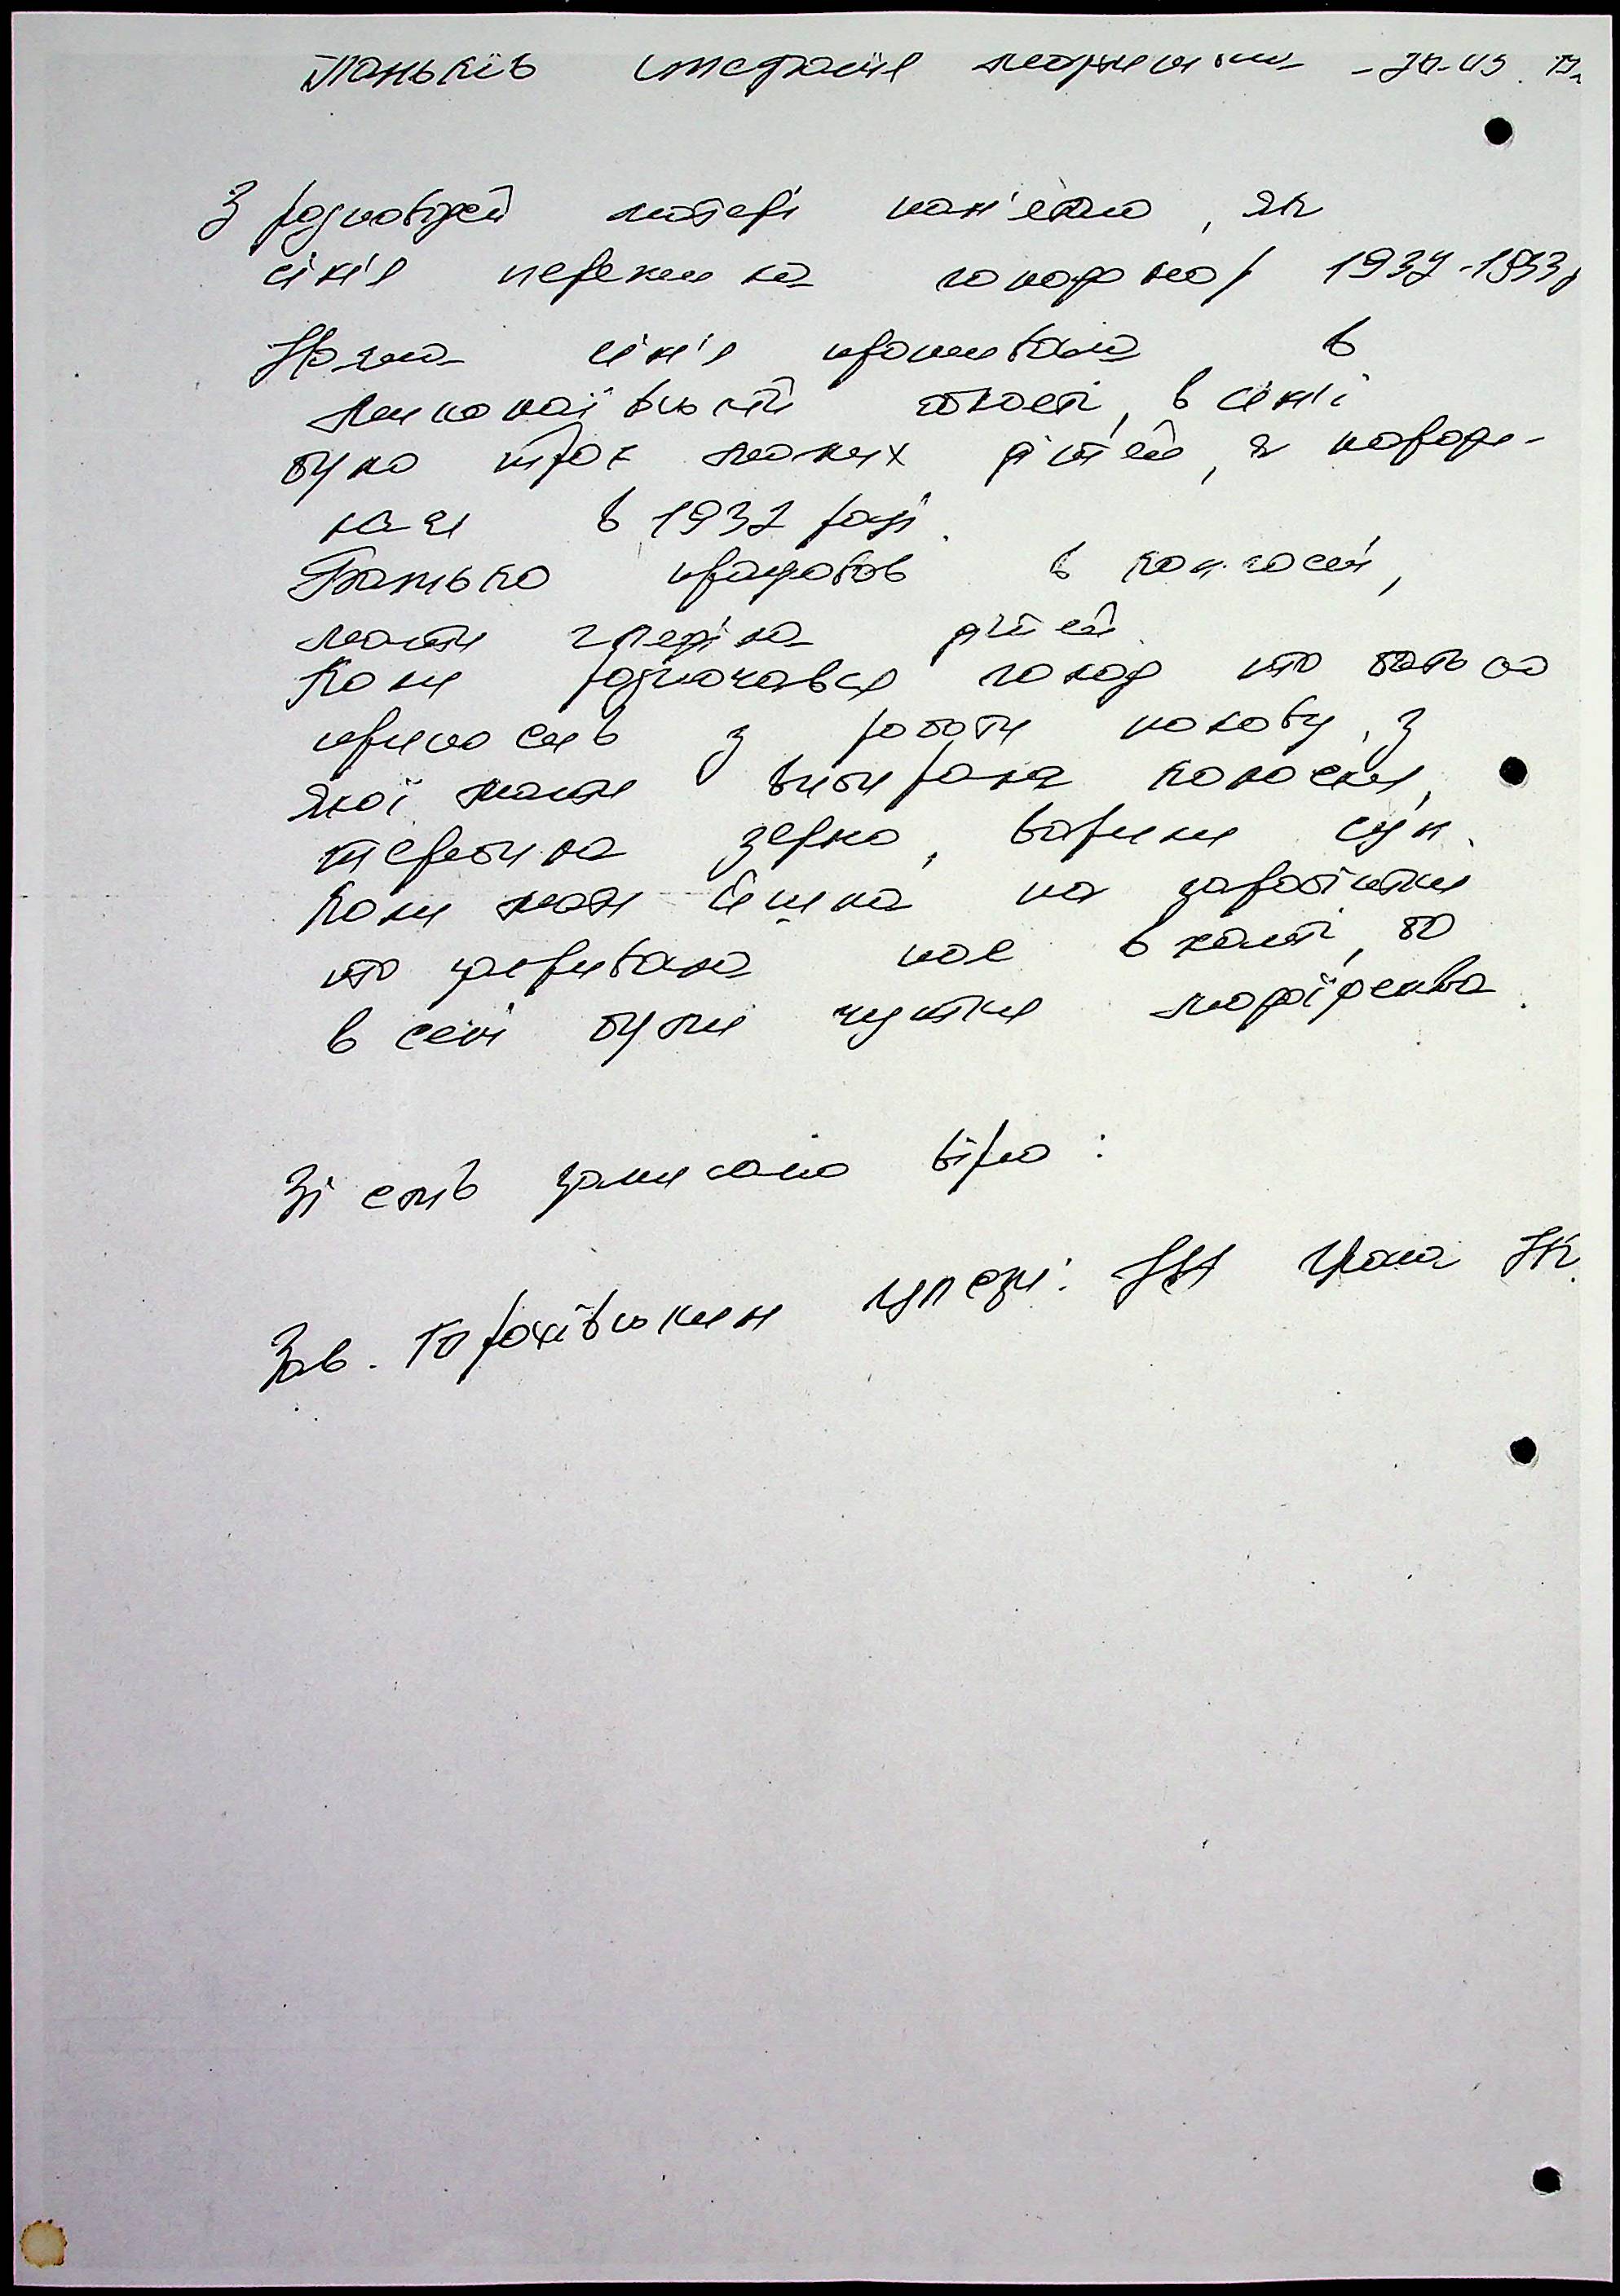 Паньків Стефанія
З розповідей матері пам'ятаю, як
сім'я пережила голодомор 1932-1933р
Наша сім'я проживала в
Миколаївській області, в сім'ї
було троє малих дітей, я народи-
лася в 1932 році.
Батько працював в колгоспі,
мати гляділа дітей.
Коли розпочався голод то батько
приносив з роботи полову, з
якої мати вибирала колоски,
теребила зерно, варили суп.
Коли мати йшла на заробітки
то закривала нас в хаті, бо
в селі були чутки людоїдства.
Зі слів записано вірно:
Зав.